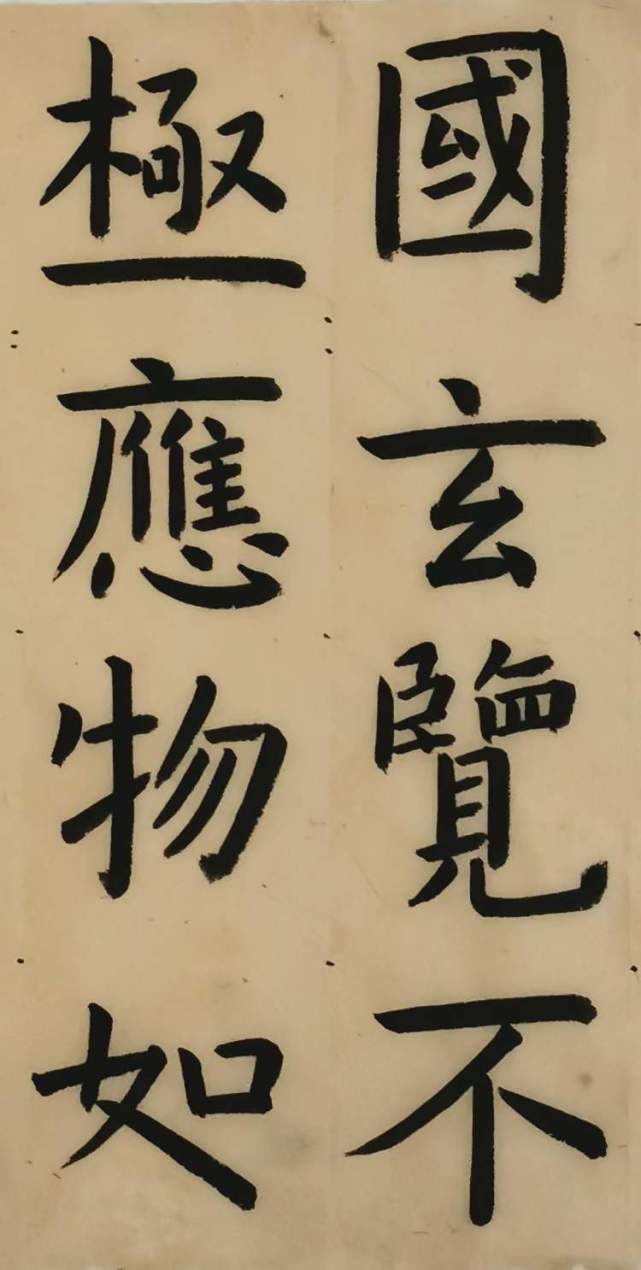 國玄覽不
極應物如